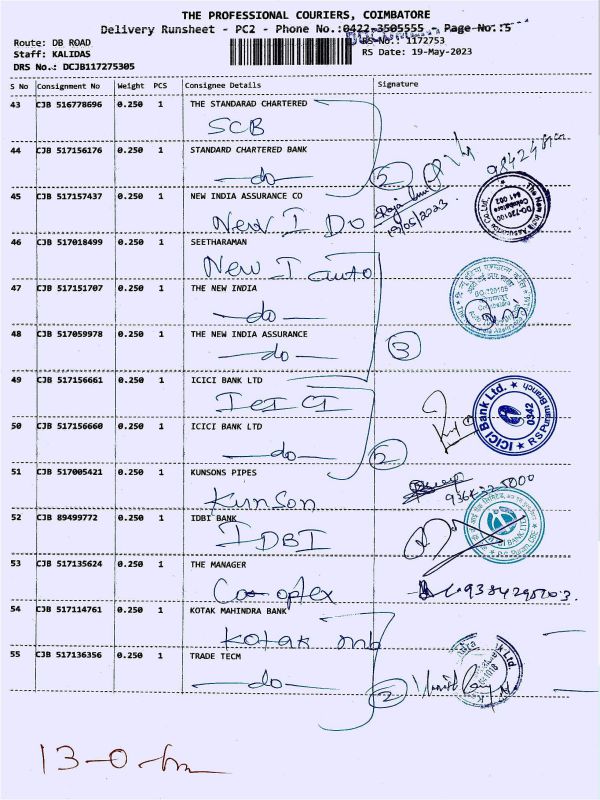 THE PROFESSIONAL COURIERS, COIMBATORE
Delivery Runsheet - PC2 - Phone No.:0422-3505555 - Page No.:5
Route: DB ROAD
RS No.: 1172753
Staff: KALIDAS
RS Date: 19-May-2023
DRS No.: DCJB117275305
S No Consignment No Weight PCS Consignee Details Signature
43 CJB 516778696 0.250 1 THE STANDARAD CHARTERED
SCB
44 CJB 517156176 0.250 1 STANDARD CHARTERED BANK
do
45 CJB 517157437 0.250 1 NEW INDIA ASSURANCE CO
New I Do
19/05/2023
46 CJB 517018499 0.250 1 SEETHARAMAN
New I auto
47 CJB 517151707 0.250 1 THE NEW INDIA
do
48 CJB 517059978 0.250 1 THE NEW INDIA ASSURANCE
do 3
49 CJB 517156661 0.250 1 ICICI BANK LTD
ICICI
ICICI Bank Ltd. ★ R S Puram Branch ★ 0342
50 CJB 517156660 0.250 1 ICICI BANK LTD
do
51 CJB 517005421 0.250 1 KUNSONS PIPES
Kunson
52 CJB 89499772 0.250 1 IDBI BANK
IDBI
53 CJB 517135624 0.250 1 THE MANAGER
Co-optex
54 CJB 517114761 0.250 1 KOTAK MAHINDRA BANK
Kotak mb
55 CJB 517136356 0.250 1 TRADE TECM
do 2